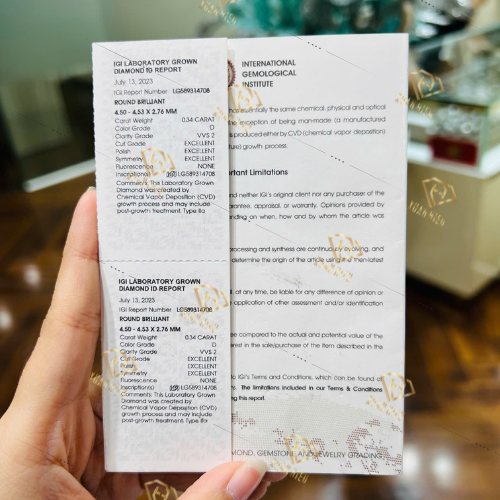 IGI LABORATORY GROWN
DIAMOND ID REPORT
July 13, 2023
IGI Report Number LG589314708
ROUND BRILLIANT
4.50 - 4.53 X 2.76 MM
Carat Weight 0.34 CARAT
Color Grade D
Clarity Grade VVS 2
Cut Grade EXCELLENT
Polish EXCELLENT
Symmetry EXCELLENT
Fluorescence NONE
Inscription(s) LG589314708
Comments: This Laboratory Grown
Diamond was created by
Chemical Vapor Deposition (CVD)
growth process and may include
post-growth treatment. Type IIa
IGI LABORATORY GROWN
DIAMOND ID REPORT
July 13, 2023
IGI Report Number LG589314708
ROUND BRILLIANT
4.50 - 4.53 X 2.76 MM
Carat Weight 0.34 CARAT
Color Grade D
Clarity Grade VVS 2
Cut Grade EXCELLENT
Polish EXCELLENT
Symmetry EXCELLENT
Fluorescence NONE
Inscription(s) LG589314708
Comments: This Laboratory Grown
Diamond was created by
Chemical Vapor Deposition (CVD)
growth process and may include
post-growth treatment. Type IIa
INTERNATIONAL
GEMOLOGICAL
INSTITUTE
has essentially the same chemical, physical and optical
exception of being man-made (a manufactured
is produced either by CVD (chemical vapor deposition)
growth process.
Important Limitations
and neither IGI's original client nor any purchaser of the
guarantee, appraisal, or warranty. Opinions provided by
depending on when, how and by whom the article was
processing and synthesis are continuously evolving, and
determine the origin of the article using the then-latest
at any time, be liable for any difference of opinion or
or application of other assessment and/or identification
fee compared to the actual and potential value of the
interest in the sale/purchase of the item described in this
to IGI's Terms and Conditions, which can be found at
The limitations included in our Terms & Conditions
this report.
DIAMOND, GEMSTONE, AND JEWELRY GRADING